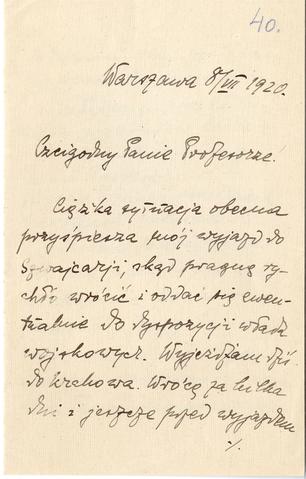 40.
Warszawa 8/VII 1920.
Czcigodny Panie Profesorze.
Ciężka sytuacja obecna
przyśpiesza mój wyjazd do
Szwajcarji, skąd pragnę ry-
chło wrócić i oddać się ewen-
tualnie do dyspozycji władz
wojskowych. Wyjeżdżam dziś
do Krakowa. Wrócę za kilka
dni i jeszcze przed wyjazdem
./.